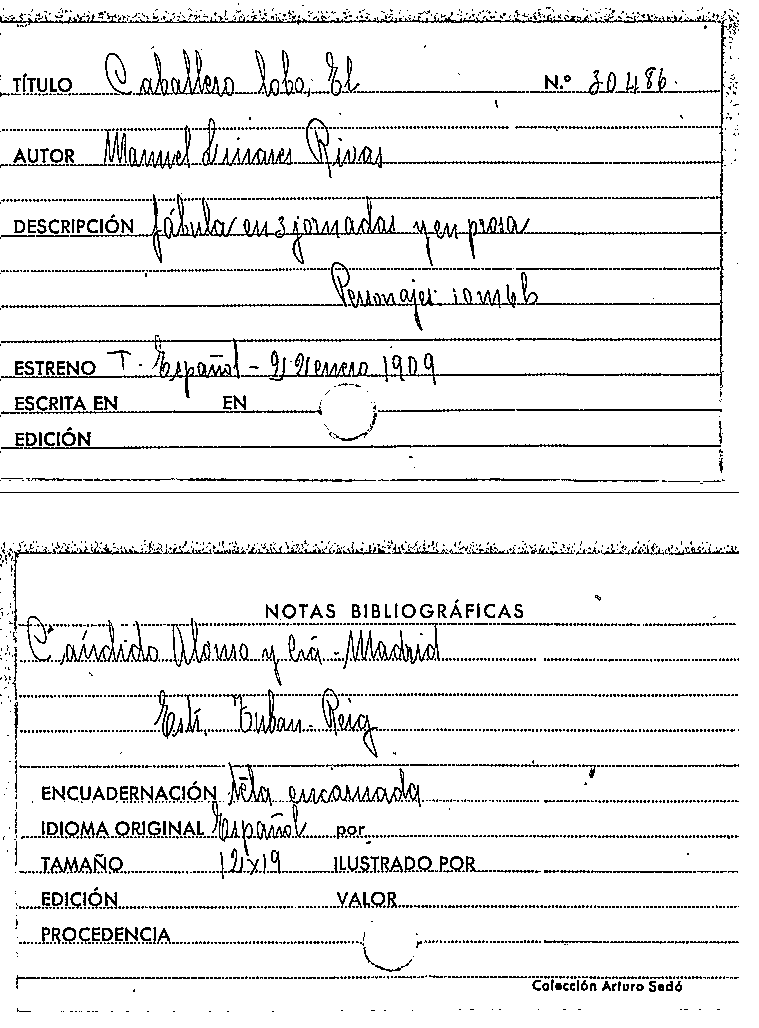 TÍTULO Caballero lobo, El N.º 30486.
AUTOR Manuel Linares Rivas
DESCRIPCIÓN fábula en 3 jornadas y en prosa
Personajes: 10 m 6 h
ESTRENO T. Español - 22 enero 1909
ESCRITA EN EN
EDICIÓN
NOTAS BIBLIOGRÁFICAS
Cándido Alonso y Cía - Madrid
Est. Tubau - Reig
ENCUADERNACIÓN tela encarnada
IDIOMA ORIGINAL Español por
TAMAÑO 12x19 ILUSTRADO POR
EDICIÓN VALOR
PROCEDENCIA
Colección Arturo Sedó